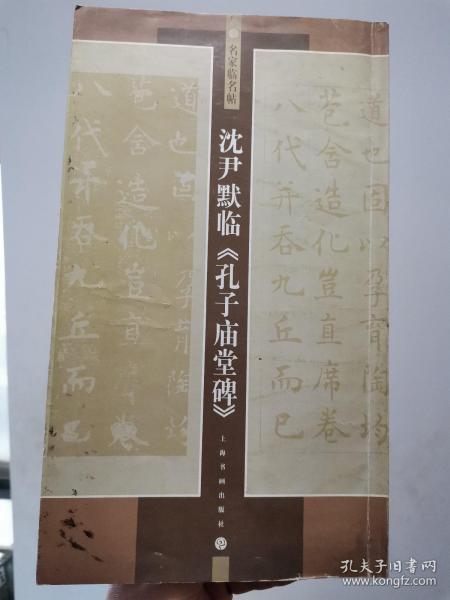 名家临名帖
沈尹默临《孔子庙堂碑》
上海书画出版社
道也固以孕育陶均
苞含造化豈直席卷
八代并吞九丘而已
道也固孕育陶均
苞含造化豈直卷
八代并吞九丘而已
孔夫子旧书网
www.kongfz.com